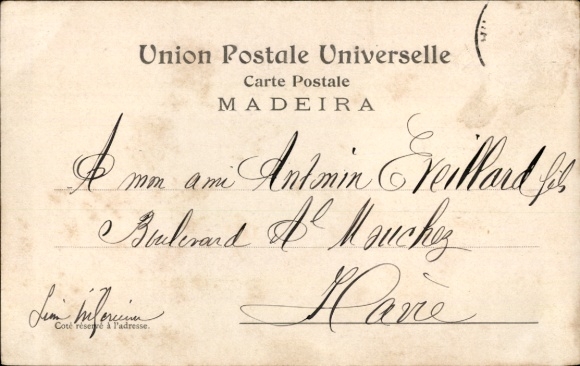 Union Postale Universelle
Carte Postale
MADEIRA
A mon ami Antonin Eveillard fils
Boulevard Al Mouchez
Havre
Coté réservé à l'adresse.